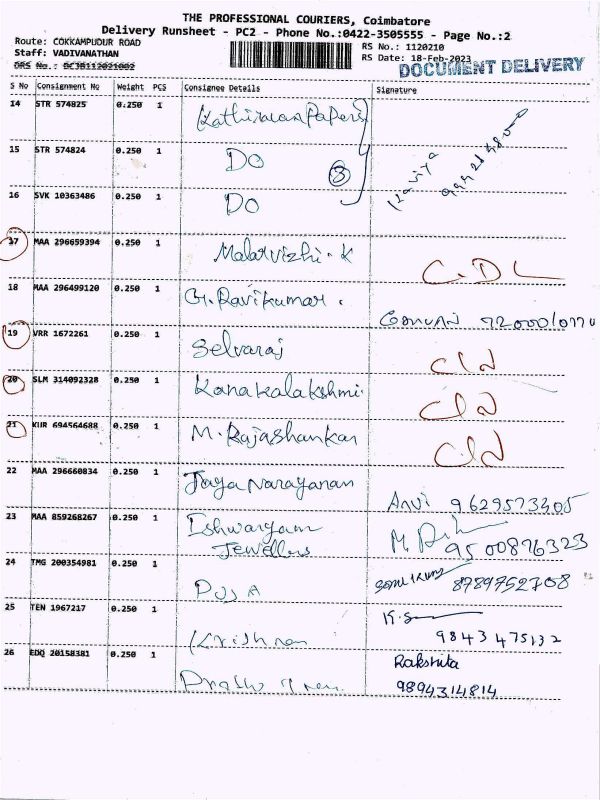 THE PROFESSIONAL COURIERS, Coimbatore
Delivery Runsheet - PC2 - Phone No.:0422-3505555 - Page No.:2
Route: COKKAMPUDUR ROAD
RS No.: 1120210
Staff: VADIVANATHAN
RS Date: 18-Feb-2023
DRS No.: DCJB112021002
DOCUMENT DELIVERY
S No Consignment No Weight PCS Consignee Details Signature
14 STR 574825 0.250 1 Kathiravan Papers
15 STR 574824 0.250 1 DO
3
Kaviya
16 SVK 10363486 0.250 1 DO
17 MAA 296659394 0.250 1 Malarvizhi. K C.DL
18 MAA 296499120 0.250 1 G. Ravikumar.
19 VRR 1672261 0.250 1 Selvaraj
20 SLM 314092328 0.250 1 Kanakalakshmi.
21 KUR 694564688 0.250 1 M. Rajashankar
22 MAA 296660834 0.250 1 Jaya Narayanan
Anvi 9629573405
23 MAA 859268267 0.250 1 Ishwaryam
Jewellers
9500876323
24 TMG 200354981 0.250 1
8789752708
25 TEN 1967217 0.250 1 Krishnan
K.S
9843475132
26 EDQ 20158381 0.250 1
Rakshita
9894314814